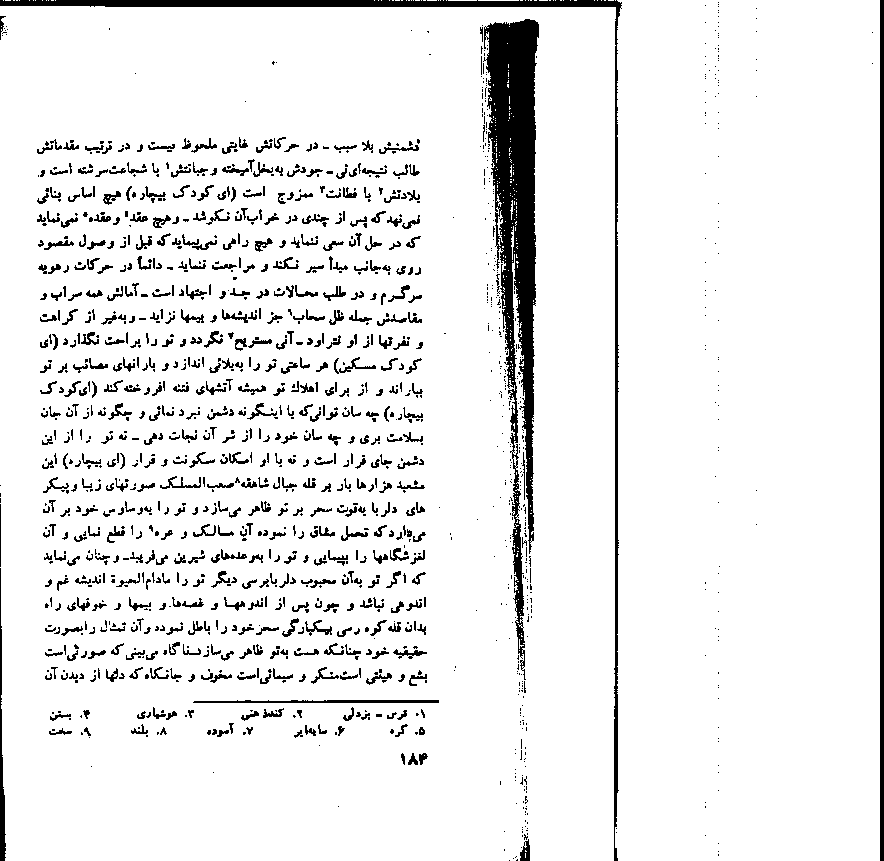 دشمنیش بلا سبب ـ در حرکاتش غایتی ملحوظ نیست و در ترتیب مقدماتش
طالب نتیجه‌ای نی ـ جودش به‌بخل‌آمیخته و جبانتش۱ با شجاعت‌سرشته است و
بلادتش۲ با فطانت۳ ممزوج است (ای کودک بیچاره) هیچ اساس بنائی
نمی‌نهد که پس از چندی در خراب‌آن نکوشد ـ و هیچ عقد۴ و عقده۵ نمی‌نماید
که در حل آن سعی ننماید و هیچ راهی نمی‌پیماید که قبل از وصول مقصود
روی به‌جانب مبدأ سیر نکند و مراجعت ننماید ـ دائماً در حرکات رهویه
سرگرم و در طلب محالات در جد و اجتهاد است ـ آمالش همه سراب و
مقاصدش جمله ظل سحاب۶ جز اندیشه‌ها و بیمها نزاید ـ و به‌غیر از کراهت
و نفرتها از او نتراود ـ آنی مستریح۷ نگردد و تو را براحت نگذارد (ای
کودک مسکین) هر ساعتی تو را به‌بلائی اندازد و بارانهای مصائب بر تو
بباراند و از برای اهلاك تو همیشه آتشهای فتنه افروخته‌کند (ای‌کودک
بیچاره) چه سان توانی‌که با اینگونه دشمن نبرد نمائی و چگونه از آن جان
بسلامت بری و چه سان خود را از شر آن نجات دهی ـ نه تو را از این
دشمن جای فرار است و نه با او امکان سکونت و قرار (ای بیچاره) این
مشعبد هزارها بار بر قله جبال شاهقه۸ صعب‌المسلک صورتهای زیبا و پیکر
های دلربا به‌قوت سحر بر تو ظاهر می‌سازد و تو را به‌وساوس خود بر آن
می‌دارد که تحمل مشاق را نموده آن مسالک و عره۹ را قطع نمایی و آن
لغزشگاهها را بپیمایی و تو را به‌وعده‌های شیرین می‌فریبد ـ و چنان می‌نماید
که اگر تو به‌آن محبوب دلربا برسی دیگر تو را مادام‌الحیوة اندیشه غم و
اندوهی نباشد و چون پس از اندوهها و غصه‌ها و بیمها و خوفهای راه
بدان قله کوه رسی بیکبارگی سحر خود را باطل نموده و آن تمثال را بصورت
حقیقیه خود چنانکه هست به‌تو ظاهر می‌سازد ناگاه می‌بینی که صورتی‌است
بشع و هیئتی است‌منکر و سیمائی‌است مخوف و جانکاه که دلها از دیدن آن
۱. ترس ـ بزدلی ۲. کندذهنی ۳. هوشیاری ۴. بستن
۵. گره ۶. سایه‌ابر ۷. آسوده ۸. بلند ۹. سخت
۱۸۴